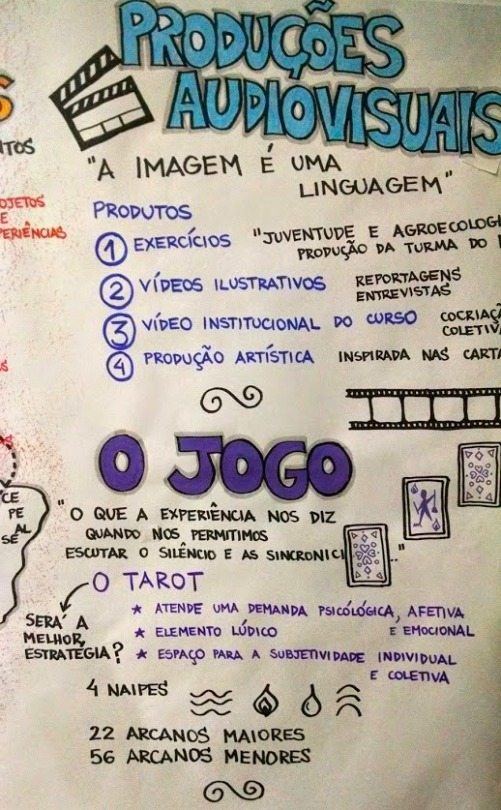 PRODUÇÕES
AUDIOVISUAIS
"A IMAGEM É UMA
LINGUAGEM"
NTOS
OJETOS
E
PERIÊNCIAS
PRODUTOS
1 EXERCÍCIOS "JUVENTUDE E AGROECOLOGI
PRODUÇÃO DA TURMA DO
2 VÍDEOS ILUSTRATIVOS REPORTAGENS
ENTREVISTAS
3 VÍDEO INSTITUCIONAL DO CURSO COCRIAÇÃ
COLETIV
4 PRODUÇÃO ARTÍSTICA INSPIRADA NAS CARTA
O JOGO
CE
PE
AL
SE
"O QUE A EXPERIÊNCIA NOS DIZ
QUANDO NOS PERMITIMOS
ESCUTAR O SILÊNCIO E AS SINCRONICI..."
O TAROT
SERÁ A
MELHOR
ESTRATÉGIA?
★ ATENDE UMA DEMANDA PSICÓLÓGICA, AFETIVA
E EMOCIONAL
★ ELEMENTO LÚDICO
★ ESPAÇO PARA A SUBJETIVIDADE INDIVIDUAL
E COLETIVA
4 NAIPES
22 ARCANOS MAIORES
56 ARCANOS MENORES